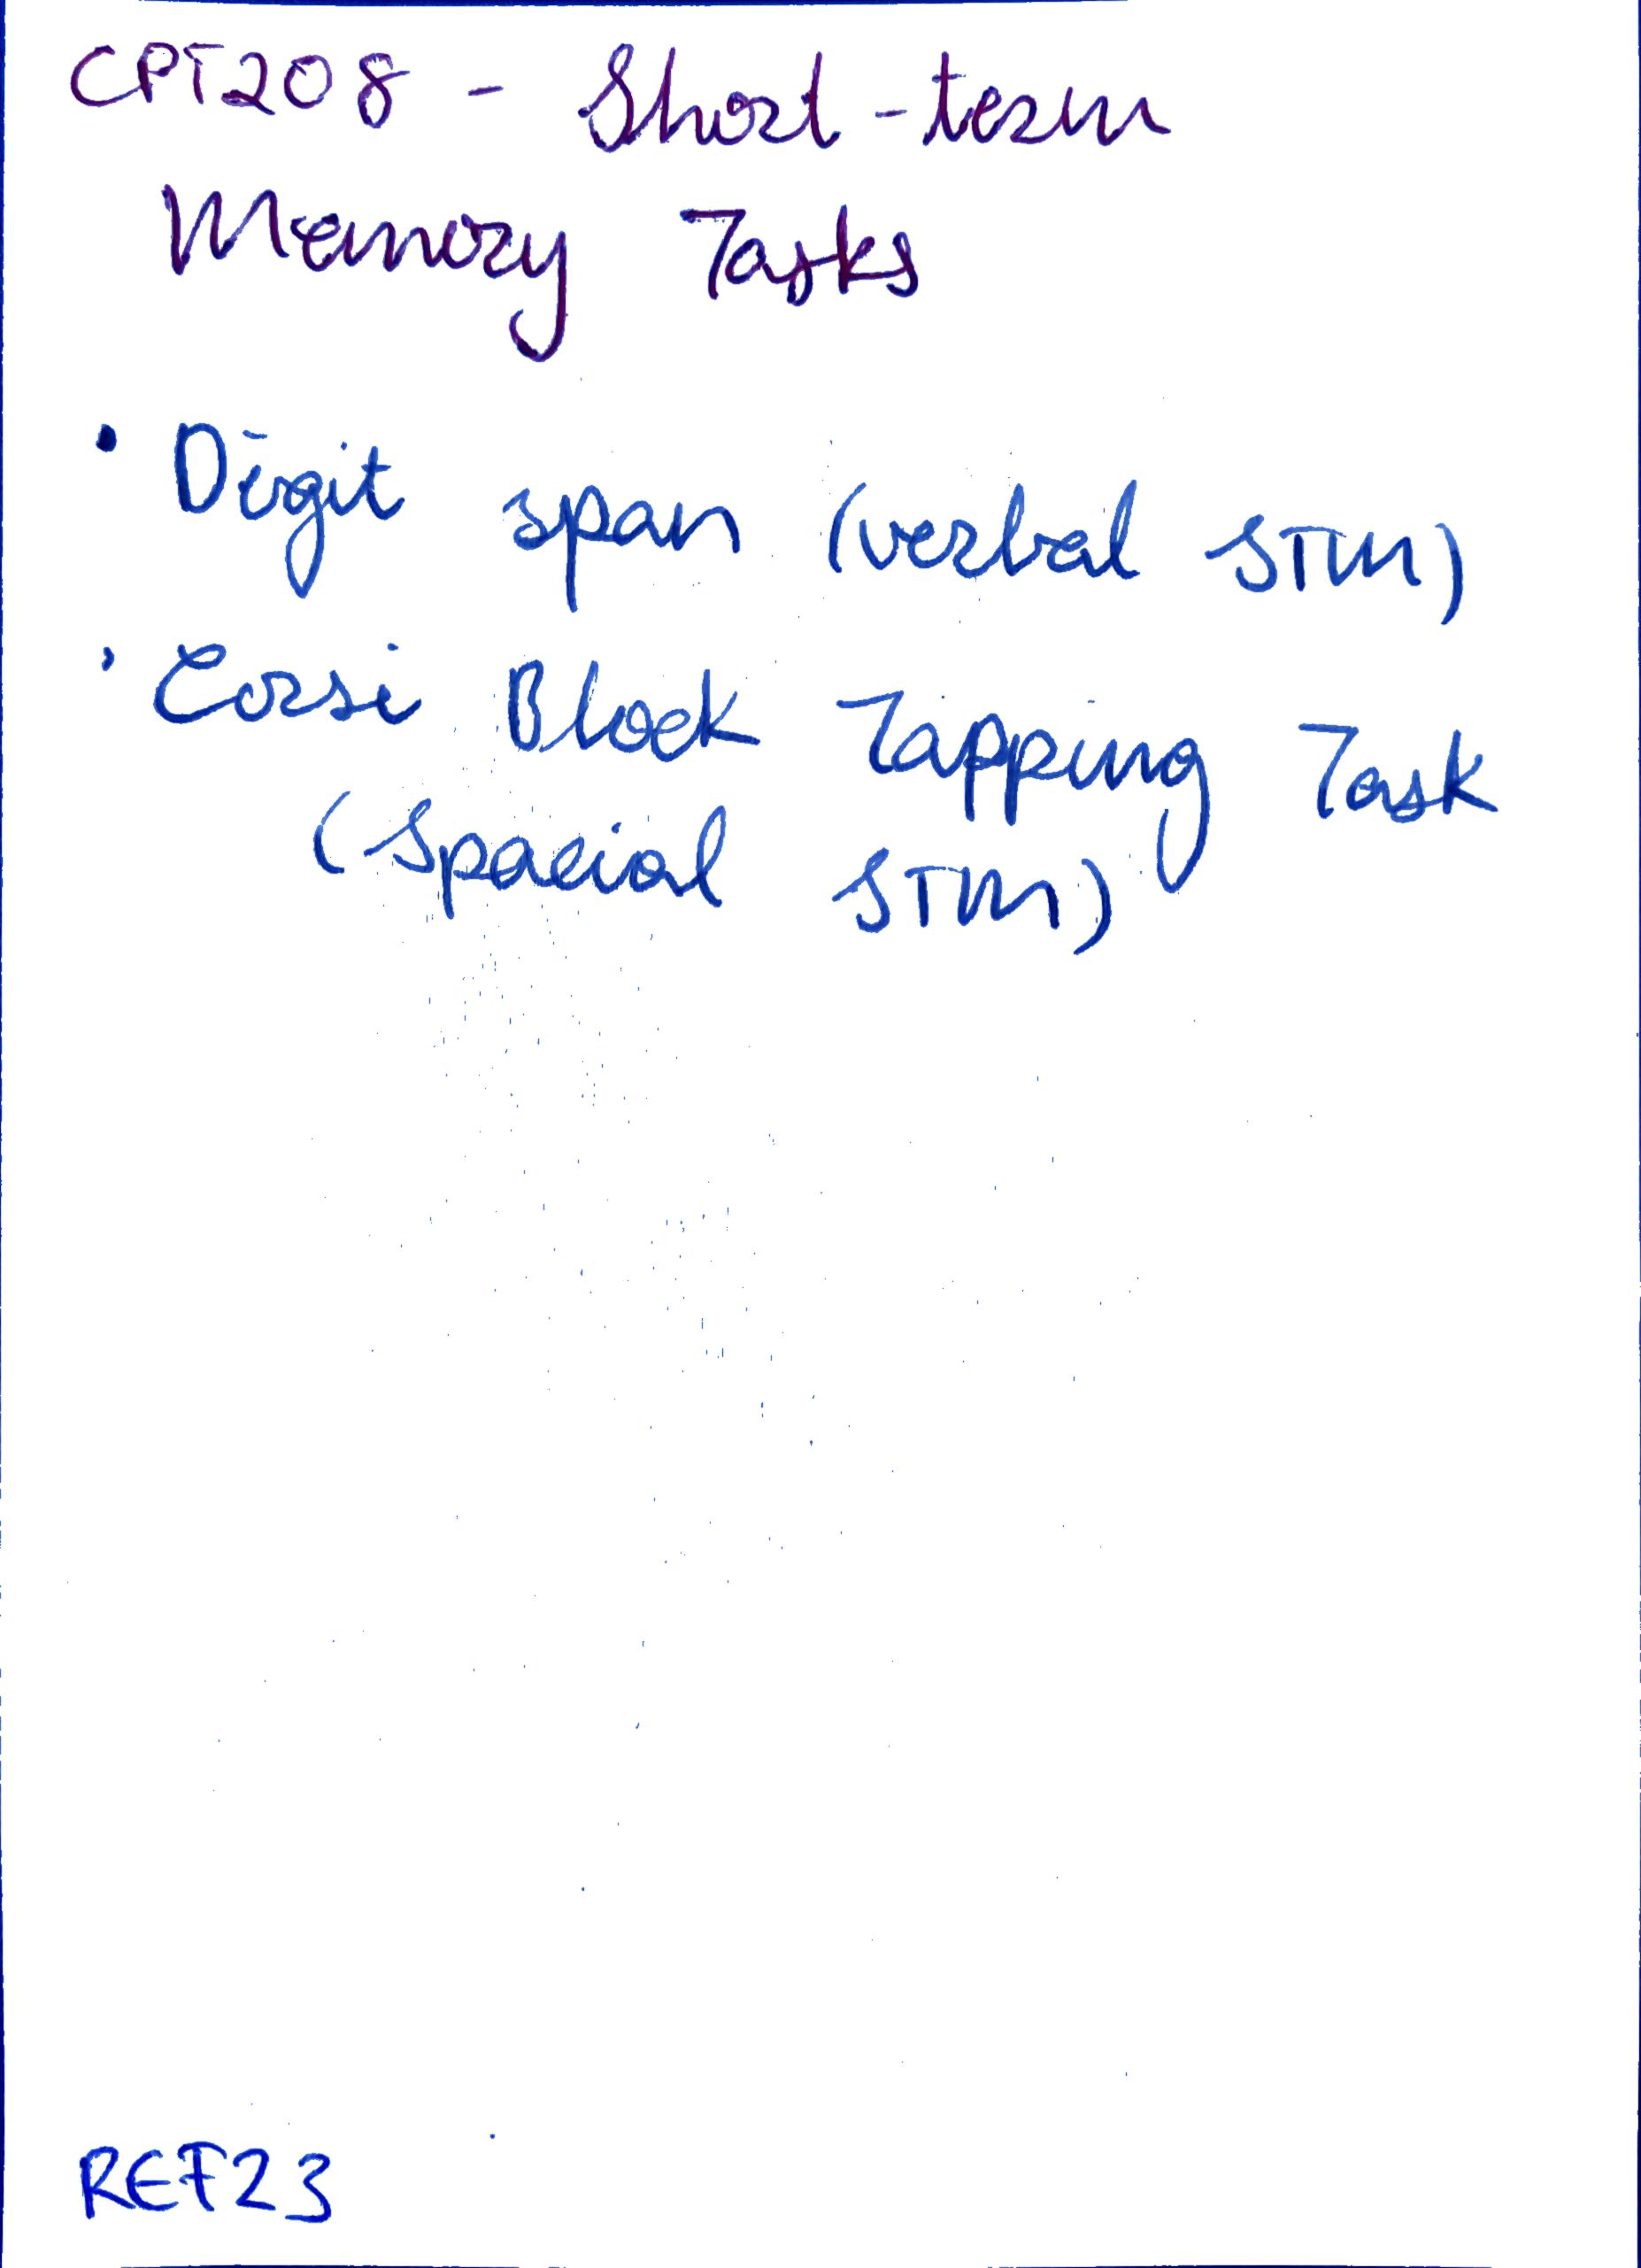 CPT208 - Short-term
Memory Tasks
• Digit span (verbal STM)
• Corsi Block Tapping Task
(Spacial STM)
REF23